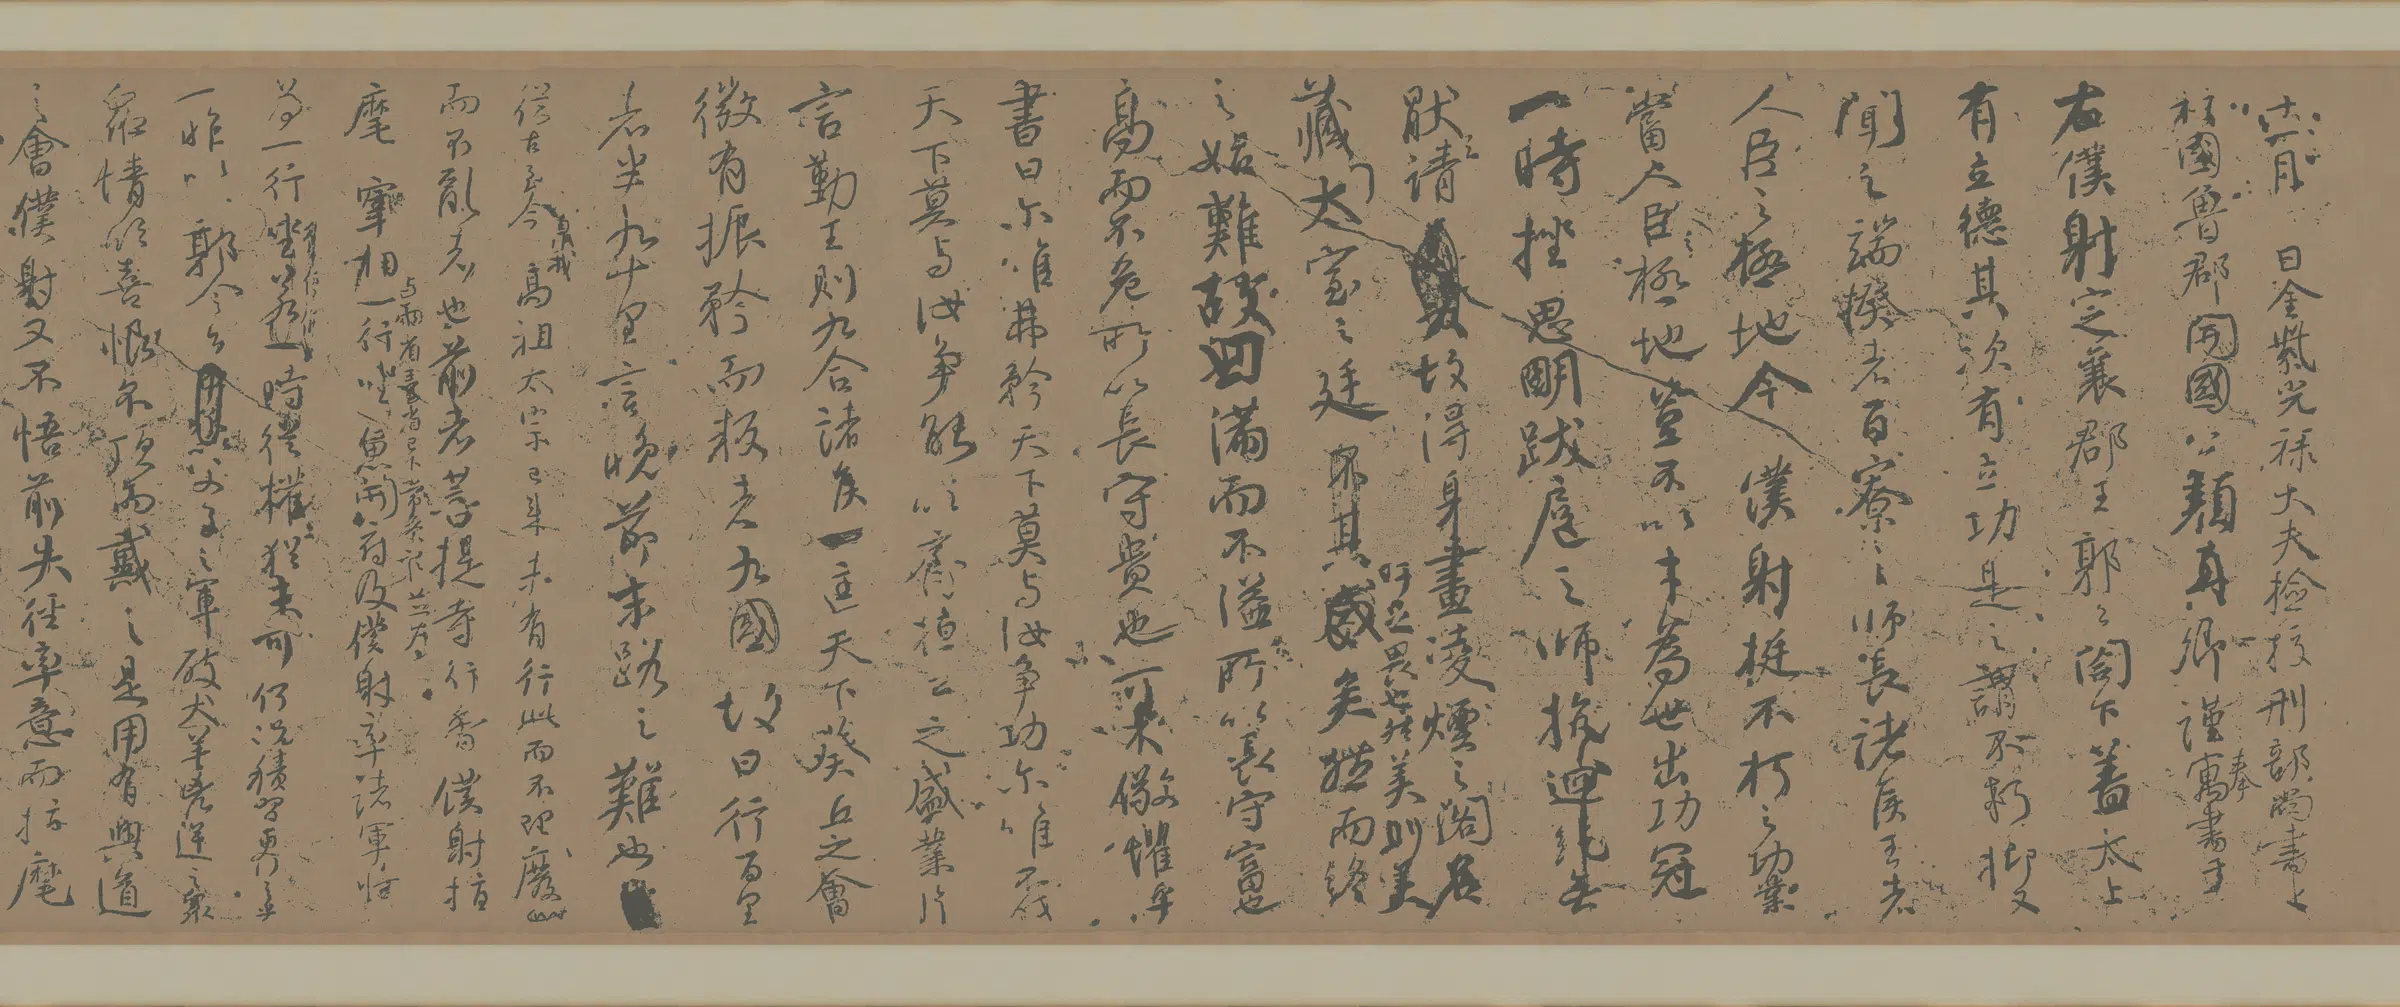 十一月日金紫光祿大夫檢校刑部尚書上
柱國魯郡開國公顏真卿謹奉寓書于
右僕射定襄郡王郭公閣下蓋太上
有立德其次有立功是之謂不朽抑又
聞之端揆者百寮之師長諸侯王者
人臣之極地今僕射挺不朽之功業
當人臣極地豈不以才為世出功冠
一時挫思明跋扈之師抗迴紇無
厭之請故得身畫凌煙之閣名
藏太室之廷吁足畏也然美則美
矣然而終
之始難故曰滿而不溢所以長守富也
高而不危所以長守貴也可不儆懼乎
書曰爾唯弗矜天下莫與汝爭功爾唯不伐
天下莫與汝爭能以齊桓公之盛業片
言勤王則九合諸侯一匡天下葵丘之會
微有振矜而叛者九國故曰行百里
者半九十里言晚節末路之難也
從古至今自我高祖太宗已來未有行此而不理廢此
而不亂者也前者菩提寺行香僕射指
麾宰相與兩省臺省已下常參官並為
一行坐魚開府及僕射率諸軍將
為一行坐若一時從權猶未可何況積習更行之乎
一昨以郭令公父子之軍破犬羊兇逆之眾
眾情欣喜恨不頂而戴之是用有興道
之會僕射又不悟前失徑率意而指麾